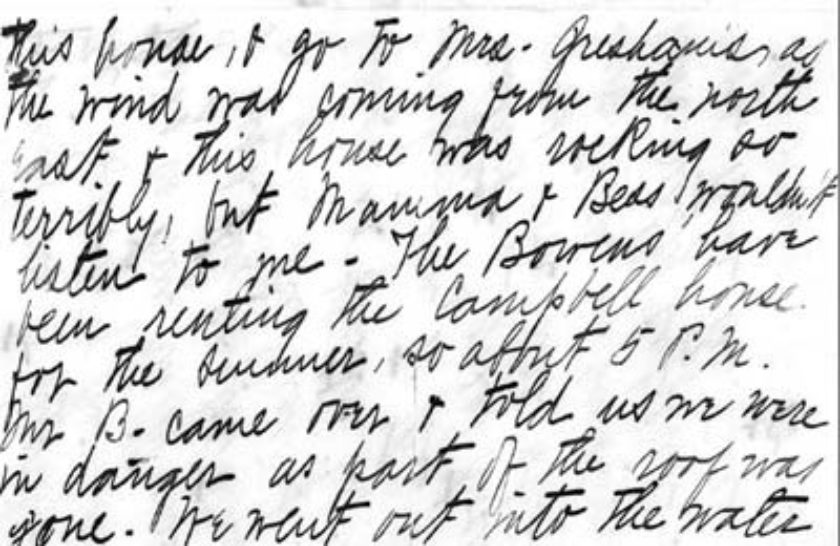 this house, & go to Mrs. Gresham's, as
the wind was coming from the north
east & this house was rocking so
terribly, but Mamma & Bess wouldn't
listen to me - The Bowens have
been renting the Campbell house
for the summer, so about 5 P.M.
Mr B. came over & told us we were
in danger as part of the roof was
gone. We went out into the water